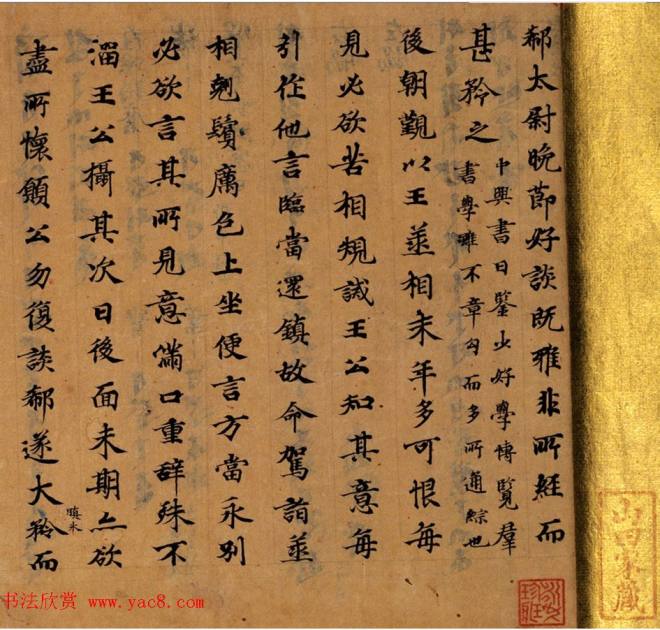 郗太尉晩節好談既雅非所經而
甚矜之
中興書曰鑒少好學博覽羣
書學雖不章勾而多所通綜也
後朝覲以王丞相末年多可恨毎
見必欲苦相規誡王公知其意毎
引作他言臨當還鎮故命駕詣丞
相翹鬚厲色上坐便言方當永別
必欲言其所見意滿口重辭殊不
溜王公攝其次曰後面未期亦欲
盡所懷願公勿復談郗遂大
而
山田家藏
书法欣赏 www.yac8.com